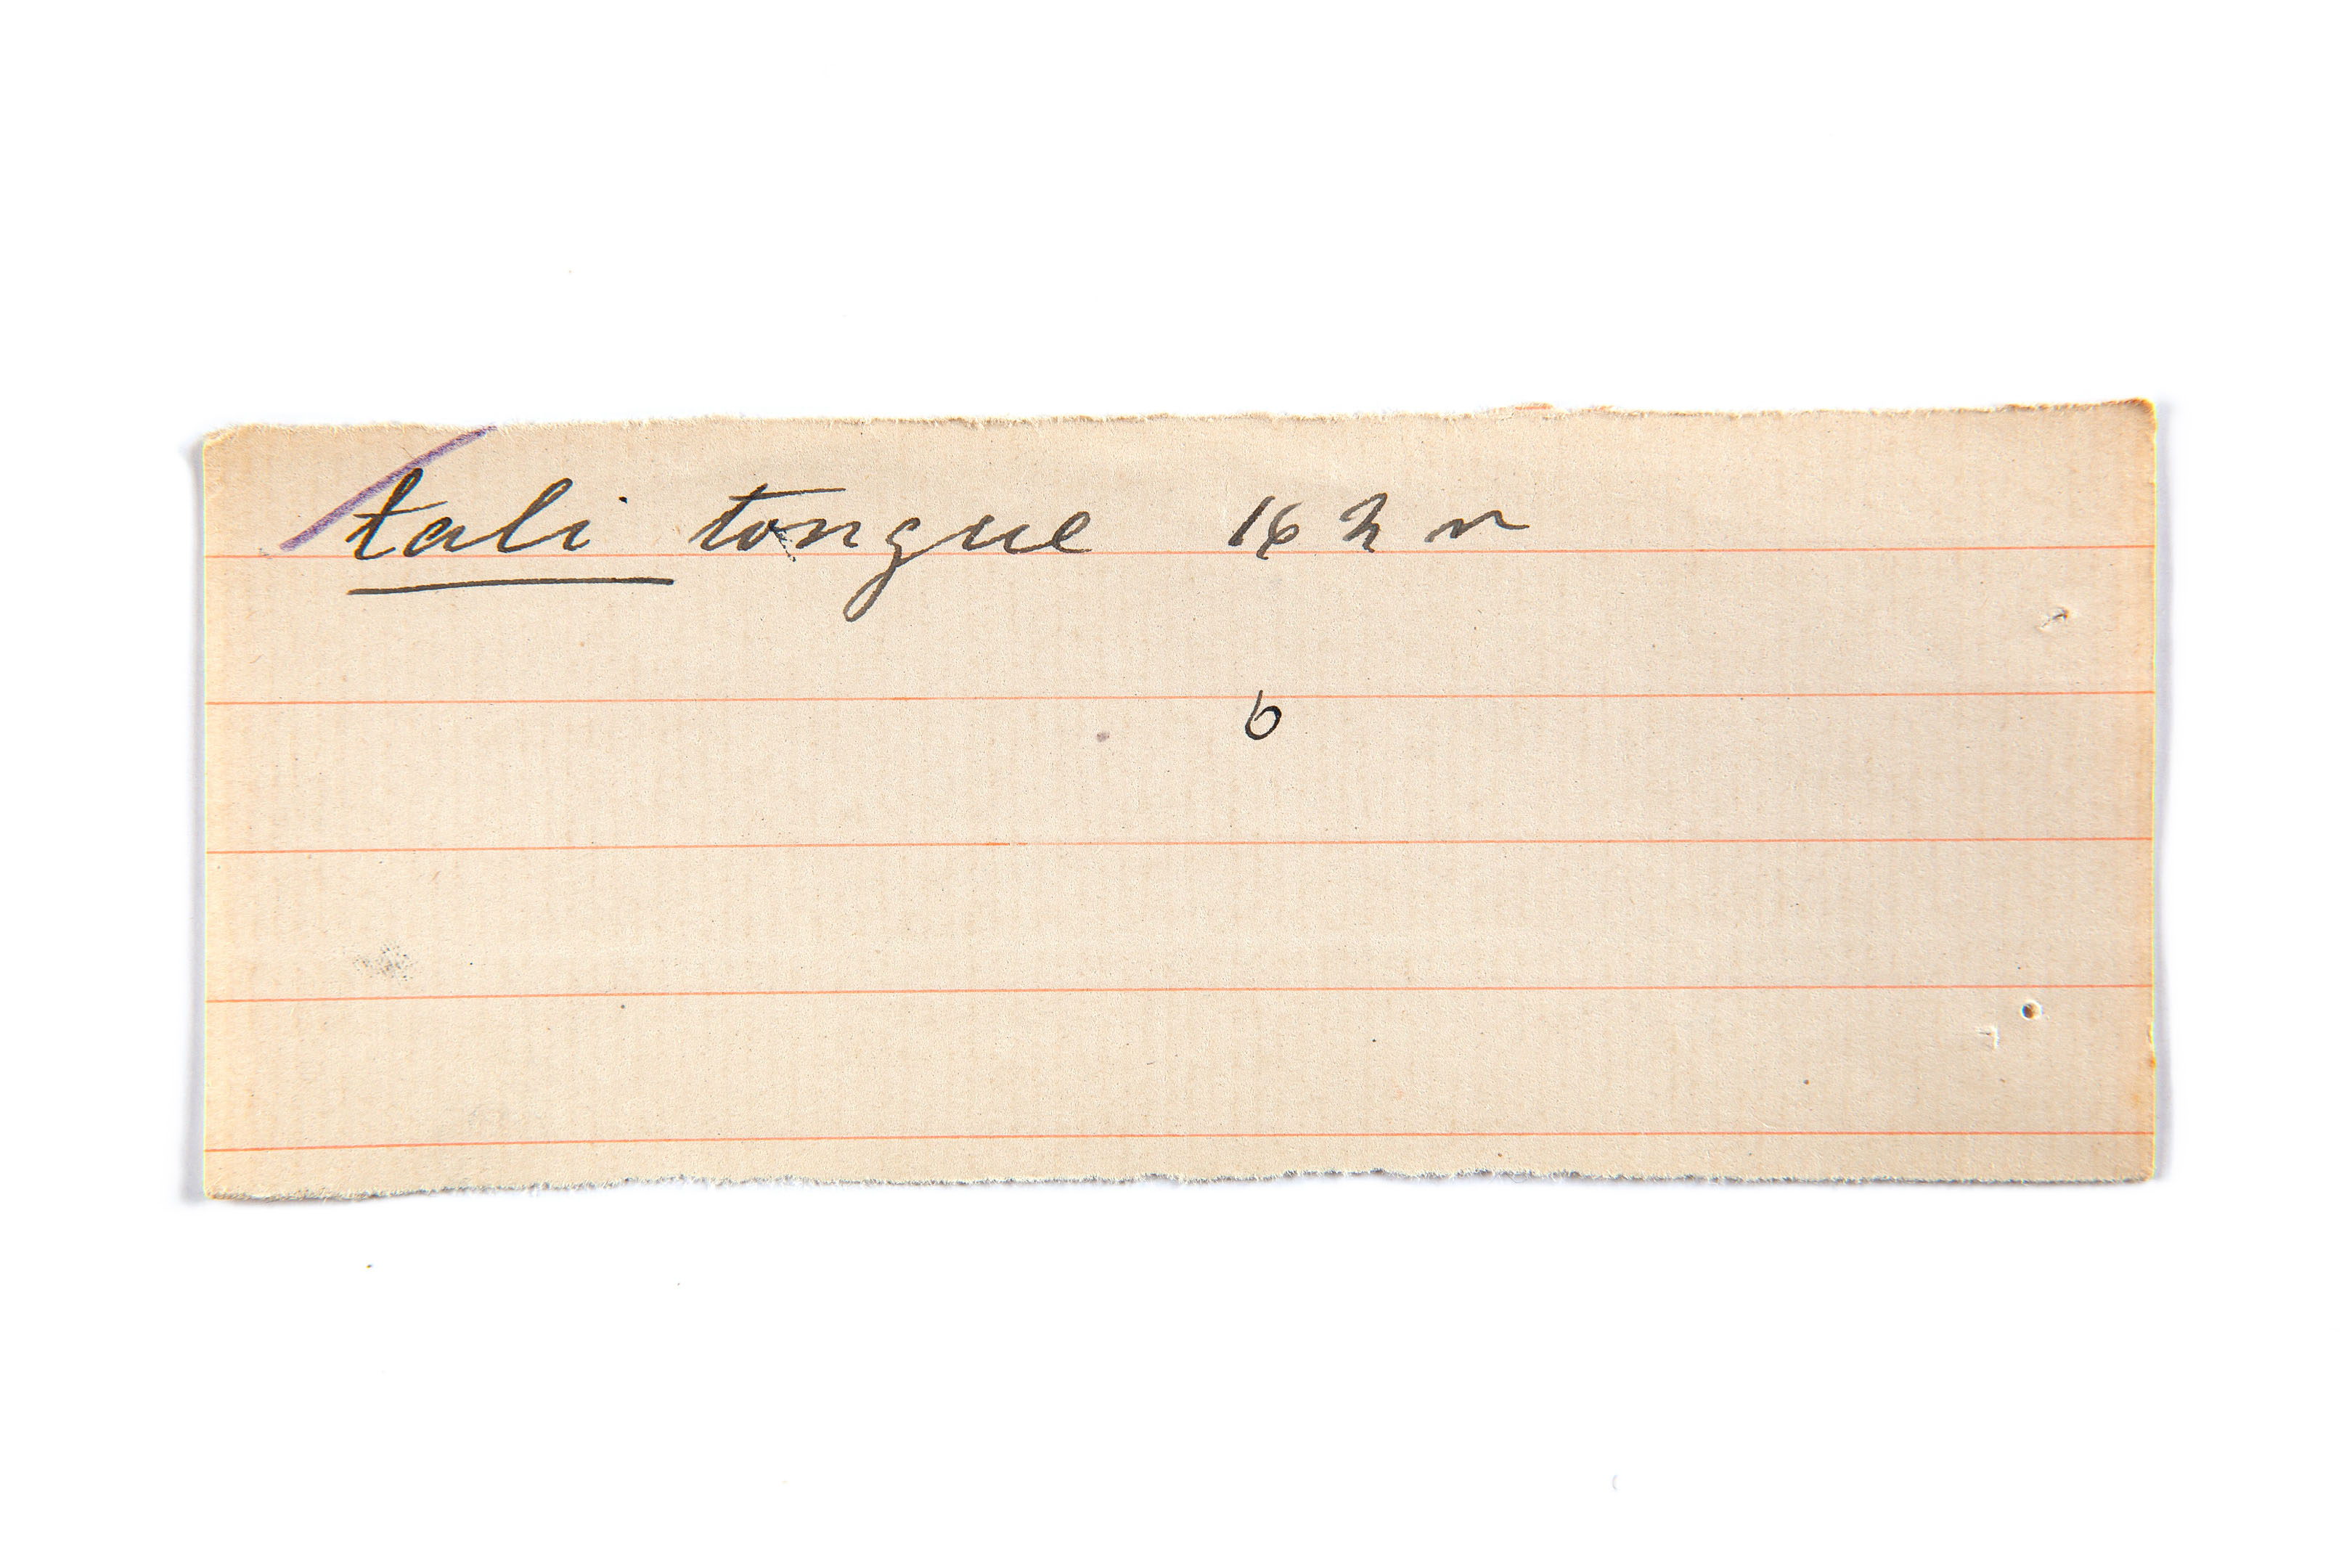 tali tongue 16 h r
6